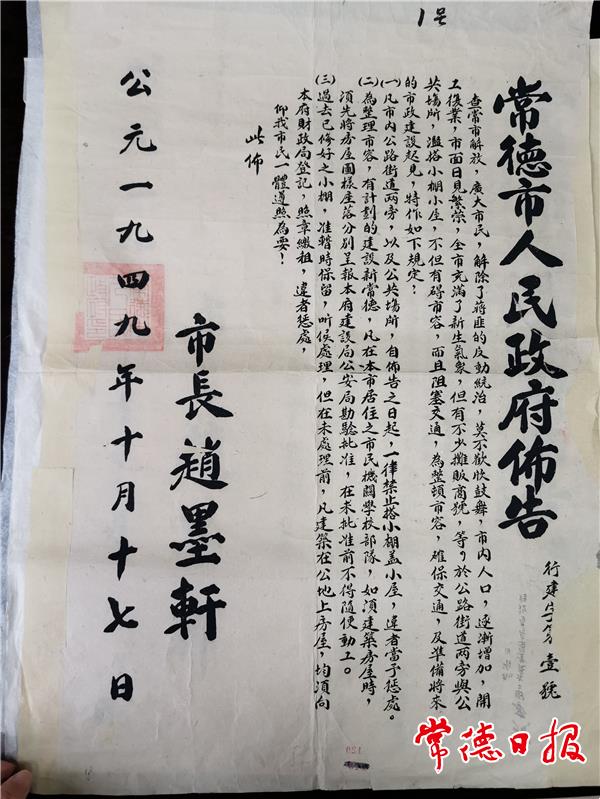 1号
常德市人民政府佈告
行建字第壹號
查常市解放，廣大市民，解除了蔣匪的反動統治，莫不歡欣鼓舞，市內人口，逐漸增加，開
工復業，市面日見繁榮，全市充滿了新生氣象，但有不少攤販商號，等，於公路街道兩旁與公
共塲所，濫搭小棚小屋，不但有碍市容，而且阻塞交通，為整頓市容，確保交通，及準備將來
的市政建設起見，特作如下規定：
(一)凡市內公路街道兩旁，以及公共塲所，自佈告之日起，一律禁止搭小棚盖小屋，違者當予惩處。
(二)為整理市容，有計劃的建設新常德，凡在本市居住之市民機關學校部隊，如須建築房屋時，
須先將房屋圖樣座落分别呈報本府建設局公安局勘驗批准，在未批准前不得随便動工。
(三)過去已修好之小棚，准暫時保留，听候處理，但在未處理前，凡建築在公地上房屋，均須向
本府財政局登記，照章繳租，違者惩處，
仰我市民一體遵照為要！
此佈
市長趙墨軒
公元一九四九年十月十七日
120
常德日报